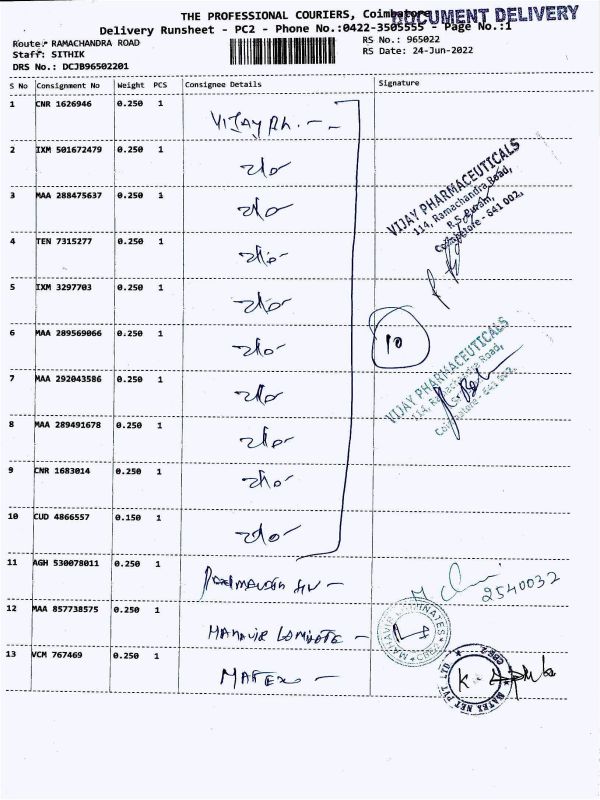 THE PROFESSIONAL COURIERS, Coimbatore
DOCUMENT DELIVERY
Delivery Runsheet - PC2 - Phone No.:0422-3505555 - Page No.:1
Route: RAMACHANDRA ROAD
RS No.: 965022
Staff: SITHIK
RS Date: 24-Jun-2022
DRS No.: DCJB96502201
S No Consignment No Weight PCS Consignee Details Signature
1 CNR 1626946 0.250 1 VIJAY Ph.
2 IXM 501672479 0.250 1
3 MAA 288475637 0.250 1
VIJAY PHARMACEUTICALS
114, Ramachandra Road,
R.S. Puram,
Coimbatore - 641 002.
4 TEN 7315277 0.250 1
5 IXM 3297703 0.250 1
6 MAA 289569066 0.250 1
10
7 MAA 292043586 0.250 1
VIJAY PHARMACEUTICALS
114, Ramachandra Road,
Coimbatore - 641 002.
8 MAA 289491678 0.250 1
9 CNR 1683014 0.250 1
10 CUD 4866557 0.150 1
11 AGH 530078011 0.250 1
2540032
12 MAA 857738575 0.250 1 MAHAVIR LAMINATE
MAHAVIR LAMINATES
CBE-2
13 VCM 767469 0.250 1 MATEX
MATEX NET PVT LTD
CBE-2